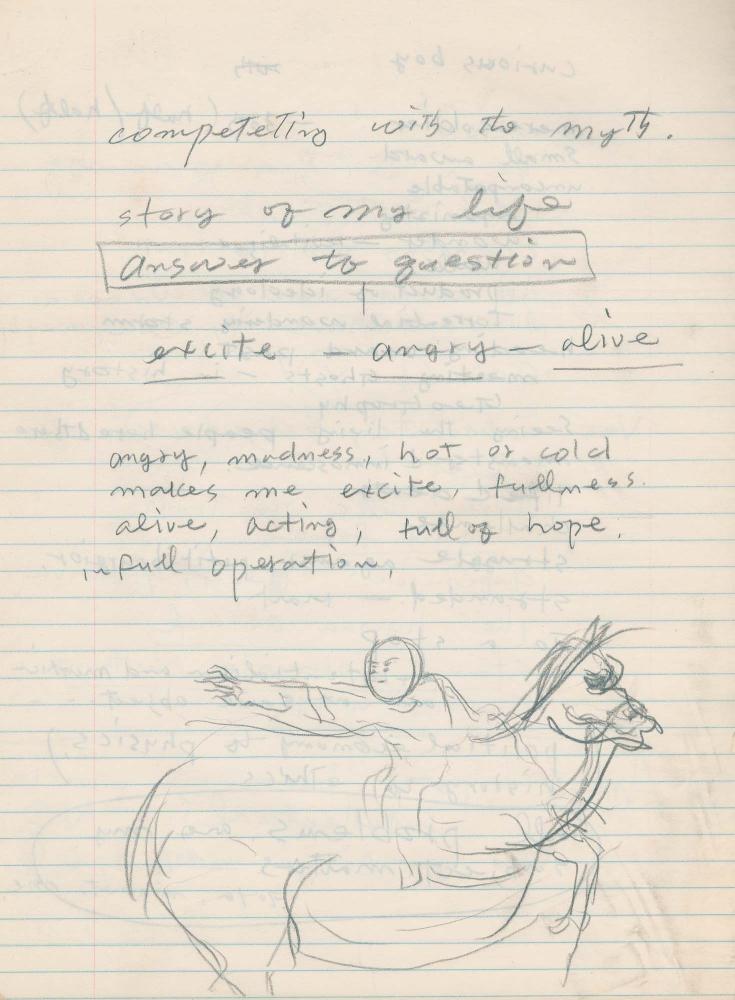 competeting with the myth.
story of my life
answer to question
excite - angry - alive
angry, madness, hot or cold
makes me excite, fullness.
alive, acting, full of hope.
in full operation,